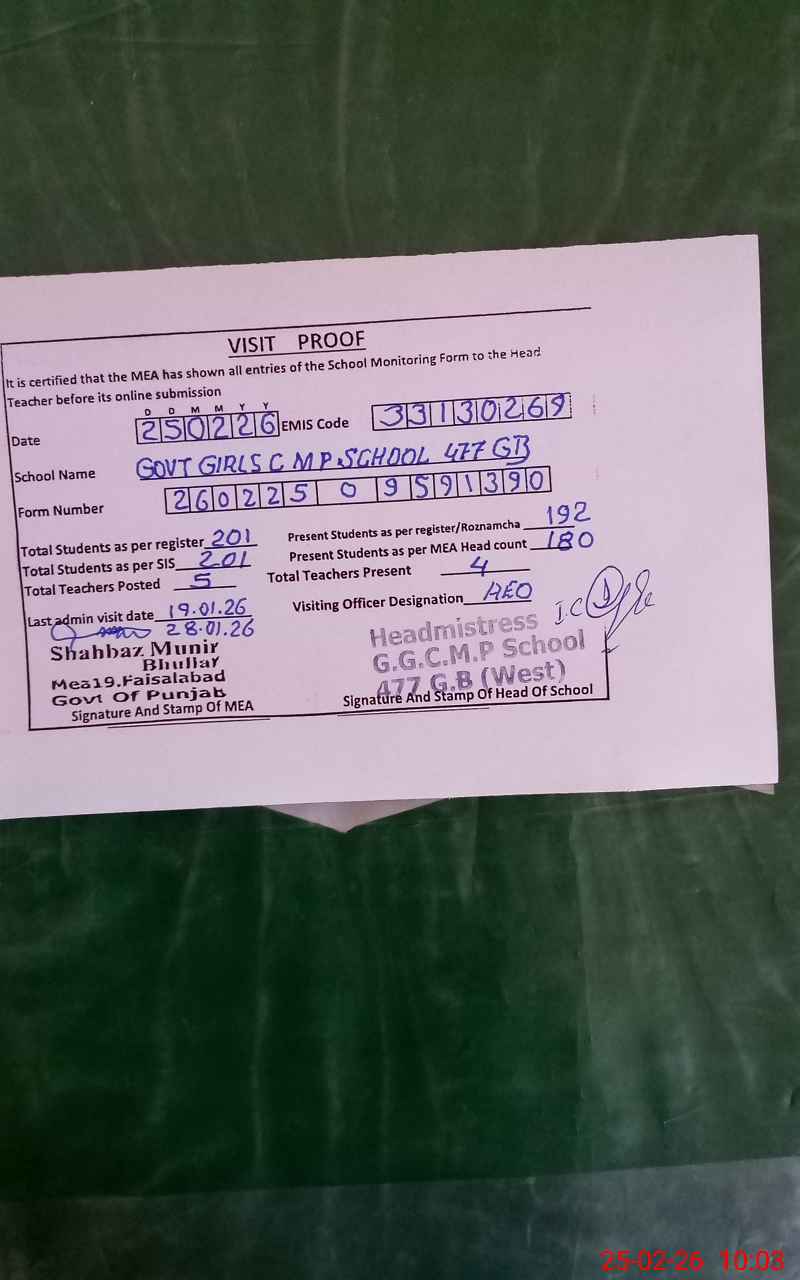 VISIT PROOF
It is certified that the MEA has shown all entries of the School Monitoring Form to the Head
Teacher before its online submission
D D M M Y Y
Date 250226 EMIS Code 33130269
School Name GOVT GIRLS C M P SCHOOL 477 GB
Form Number 260225 0 9591390
Total Students as per register 201 Present Students as per register/Roznamcha 192
Total Students as per SIS 201 Present Students as per MEA Head count 180
Total Teachers Posted 5 Total Teachers Present 4
Last admin visit date 19.01.26 Visiting Officer Designation AEO
28.01.26 I.C
Shahbaz Munir Headmistress
Bhullar G.G.C.M.P School
Mea19.Faisalabad 477 G.B (West)
Govt Of Punjab
Signature And Stamp Of MEA Signature And Stamp Of Head Of School
25-02-26 10:03